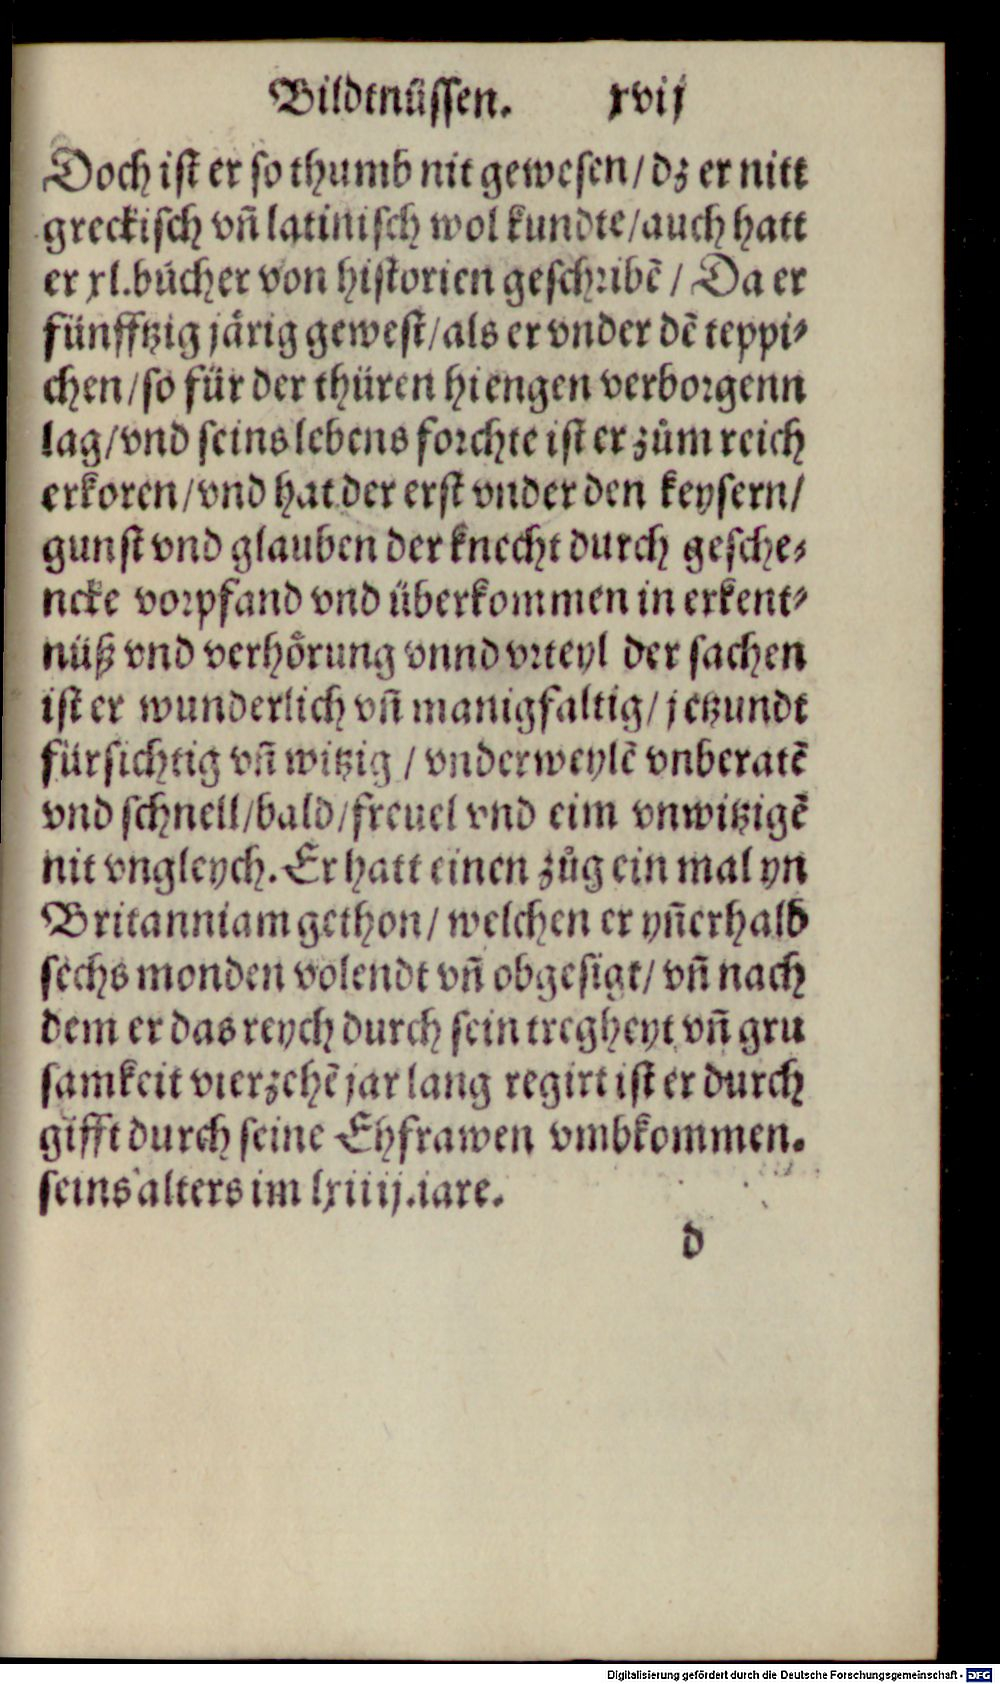 Bildtnüssen. xvij
Doch ist er so thumb nit gewesen/ dz er nitt
greckisch vñ latinisch wol kundte/ auch hatt
er xl. bücher von historien geschribẽ / Da er
fünfftzig järig gewest/ als er vnder dẽ teppi⸗
chen/ so für der thüren hiengen verborgenn
lag/ vnd seins lebens forchte ist er zům reich
erkoren/ vnd hat der erst vnder den keysern/
gunst vnd glauben der knecht durch gesche⸗
ncke vorpfand vnd überkommen in erkent⸗
nüß vnd verhörung vnnd vrteyl der sachen
ist er wunderlich vñ manigfaltig/ jetzundt
fürsichtig vñ witzig / vnderweylẽ vnberatẽ
vnd schnell/ bald/ freuel vnd eim vnwitzigẽ
nit vngleych. Er hatt einen zůg ein mal yn
Britanniam gethon/ welchen er yñerhald
sechs monden volendt vñ obgesigt/ vñ nach
dem er das reych durch sein tregheyt vñ gru
samkeit vierzehẽ jar lang regirt ist er durch
gifft durch seine Ehfrawen vmbkommen.
seins alters im lxiiij. iare.
d
Digitalisierung gefördert durch die Deutsche Forschungsgemeinschaft - DFG